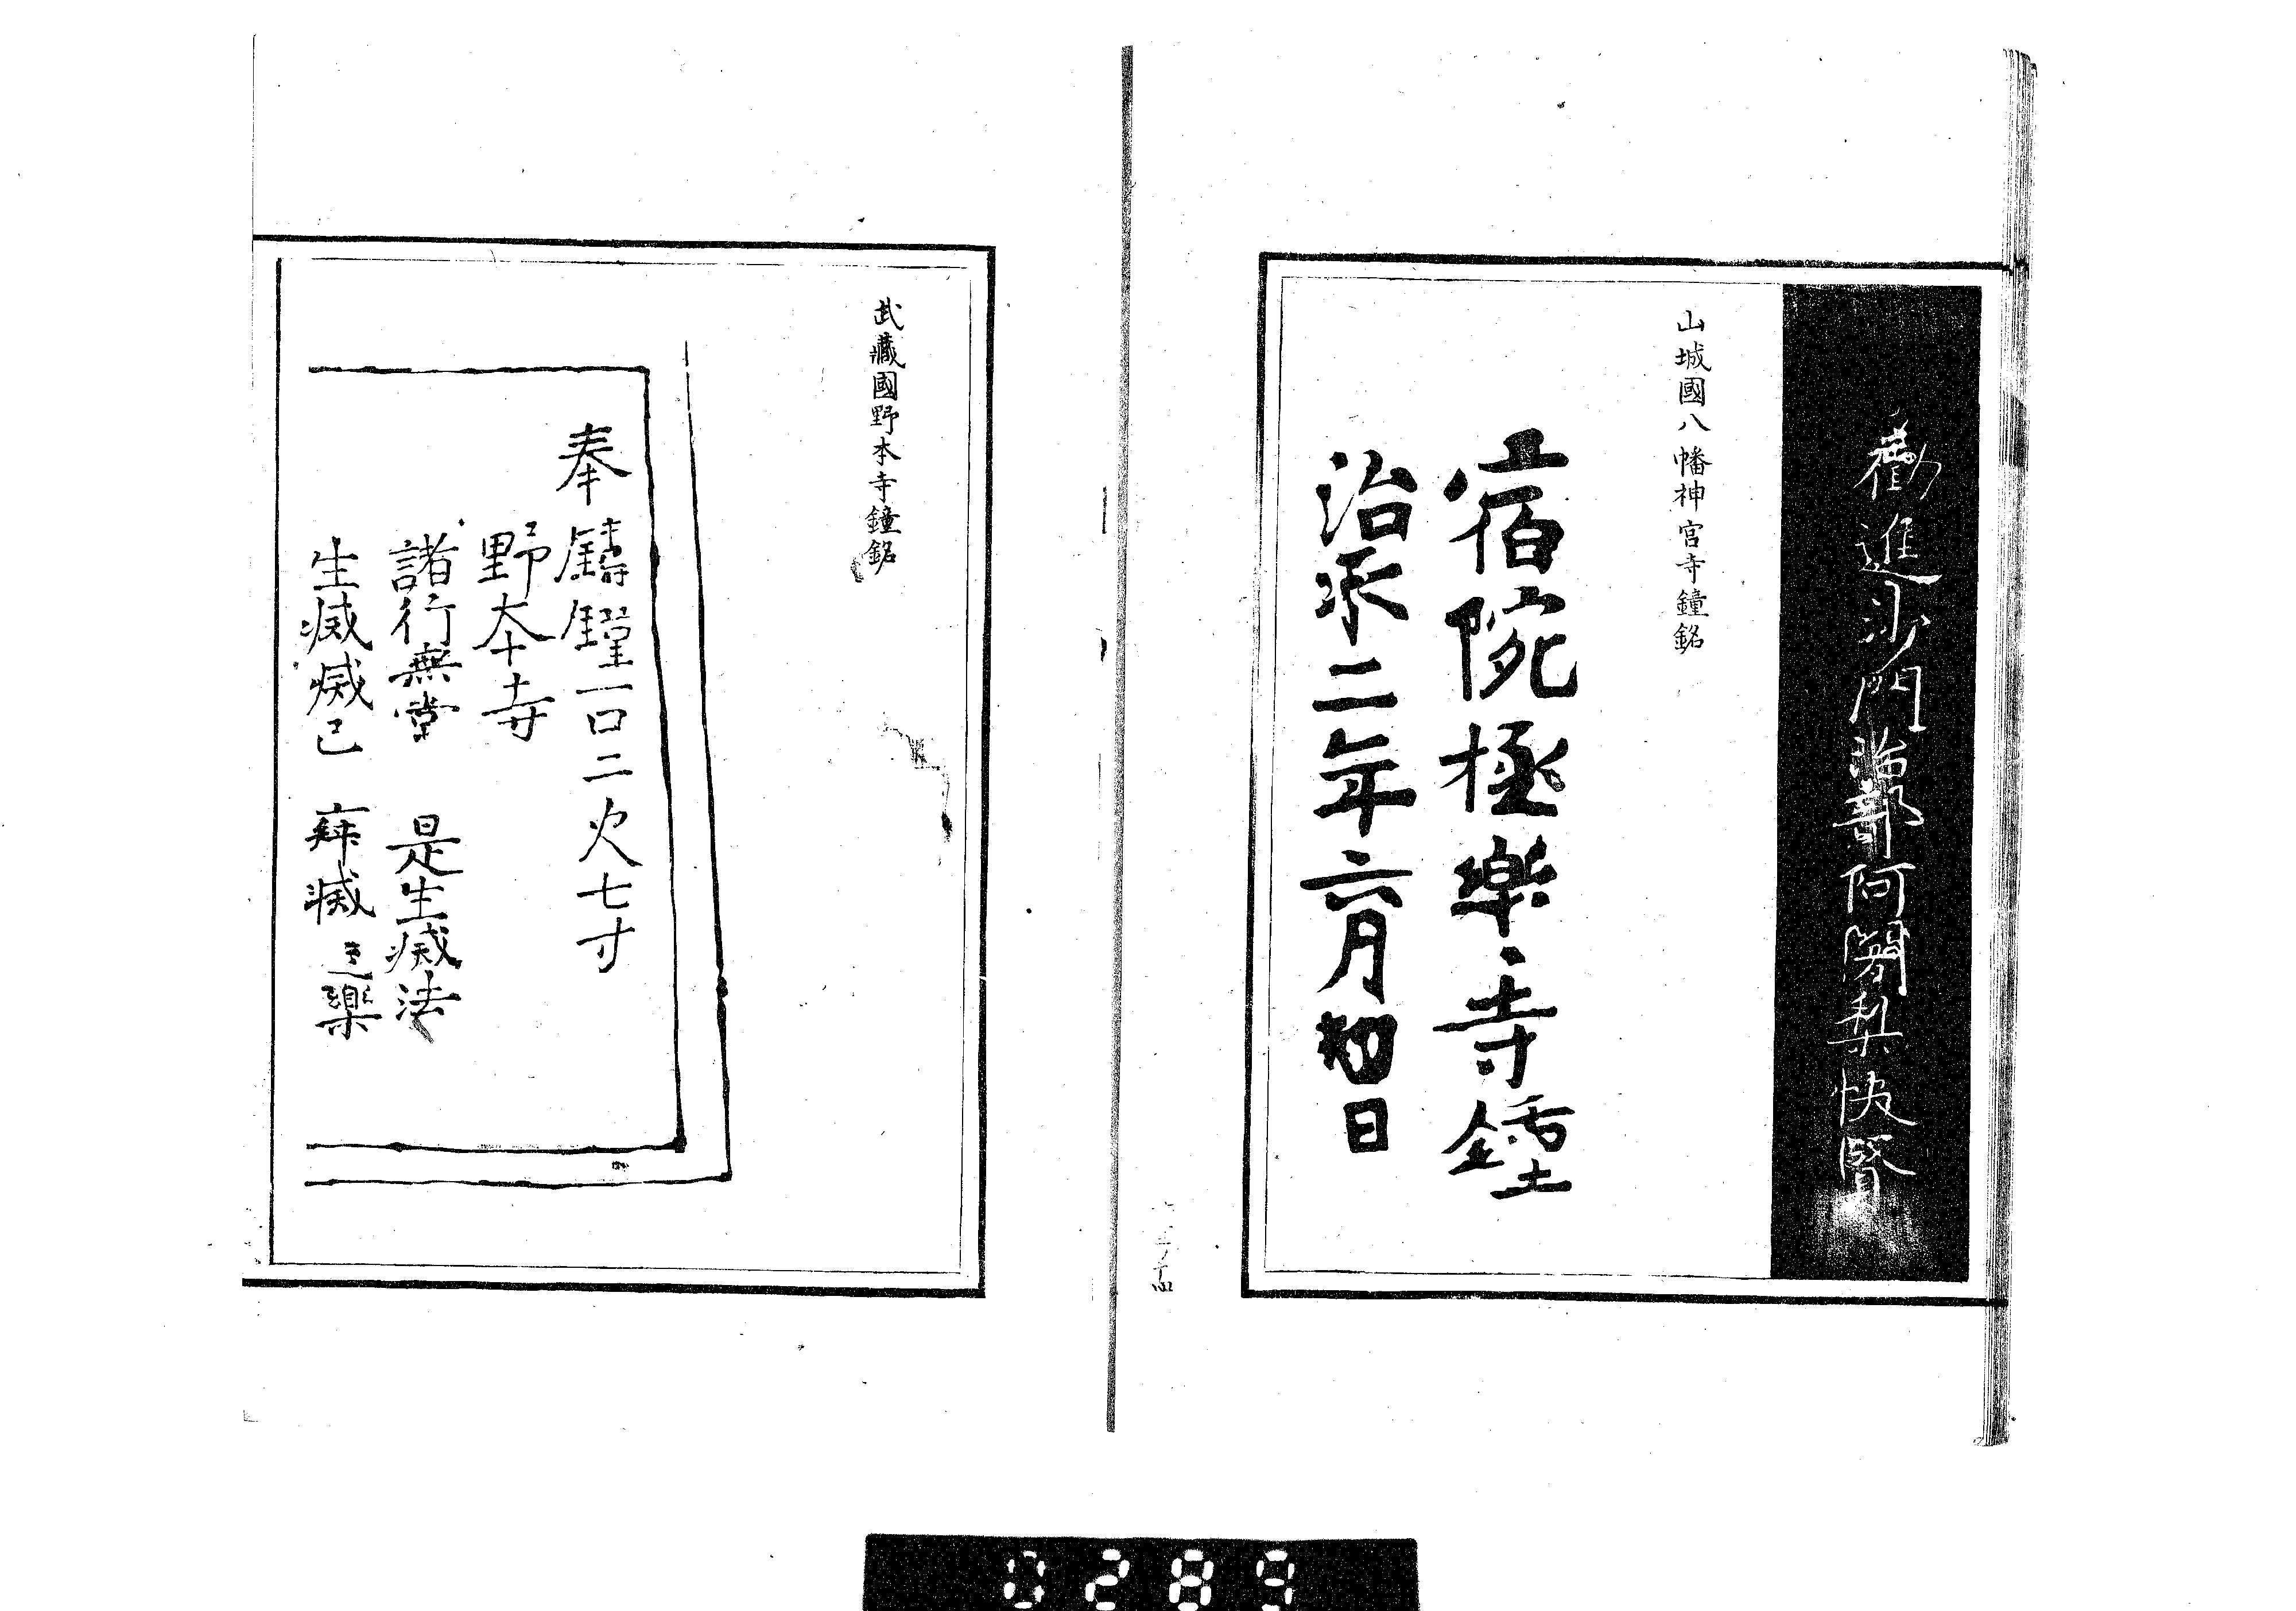 勸進沙門治部阿闍梨快賢
山城國八幡神宮寺鐘銘
宿院極樂寺鐘
治承二年六月初日
武藏國野本寺鐘銘
奉鑄鐘一口二尺七寸
野本寺
諸行無常 是生滅法
生滅滅已 寂滅為樂
0289